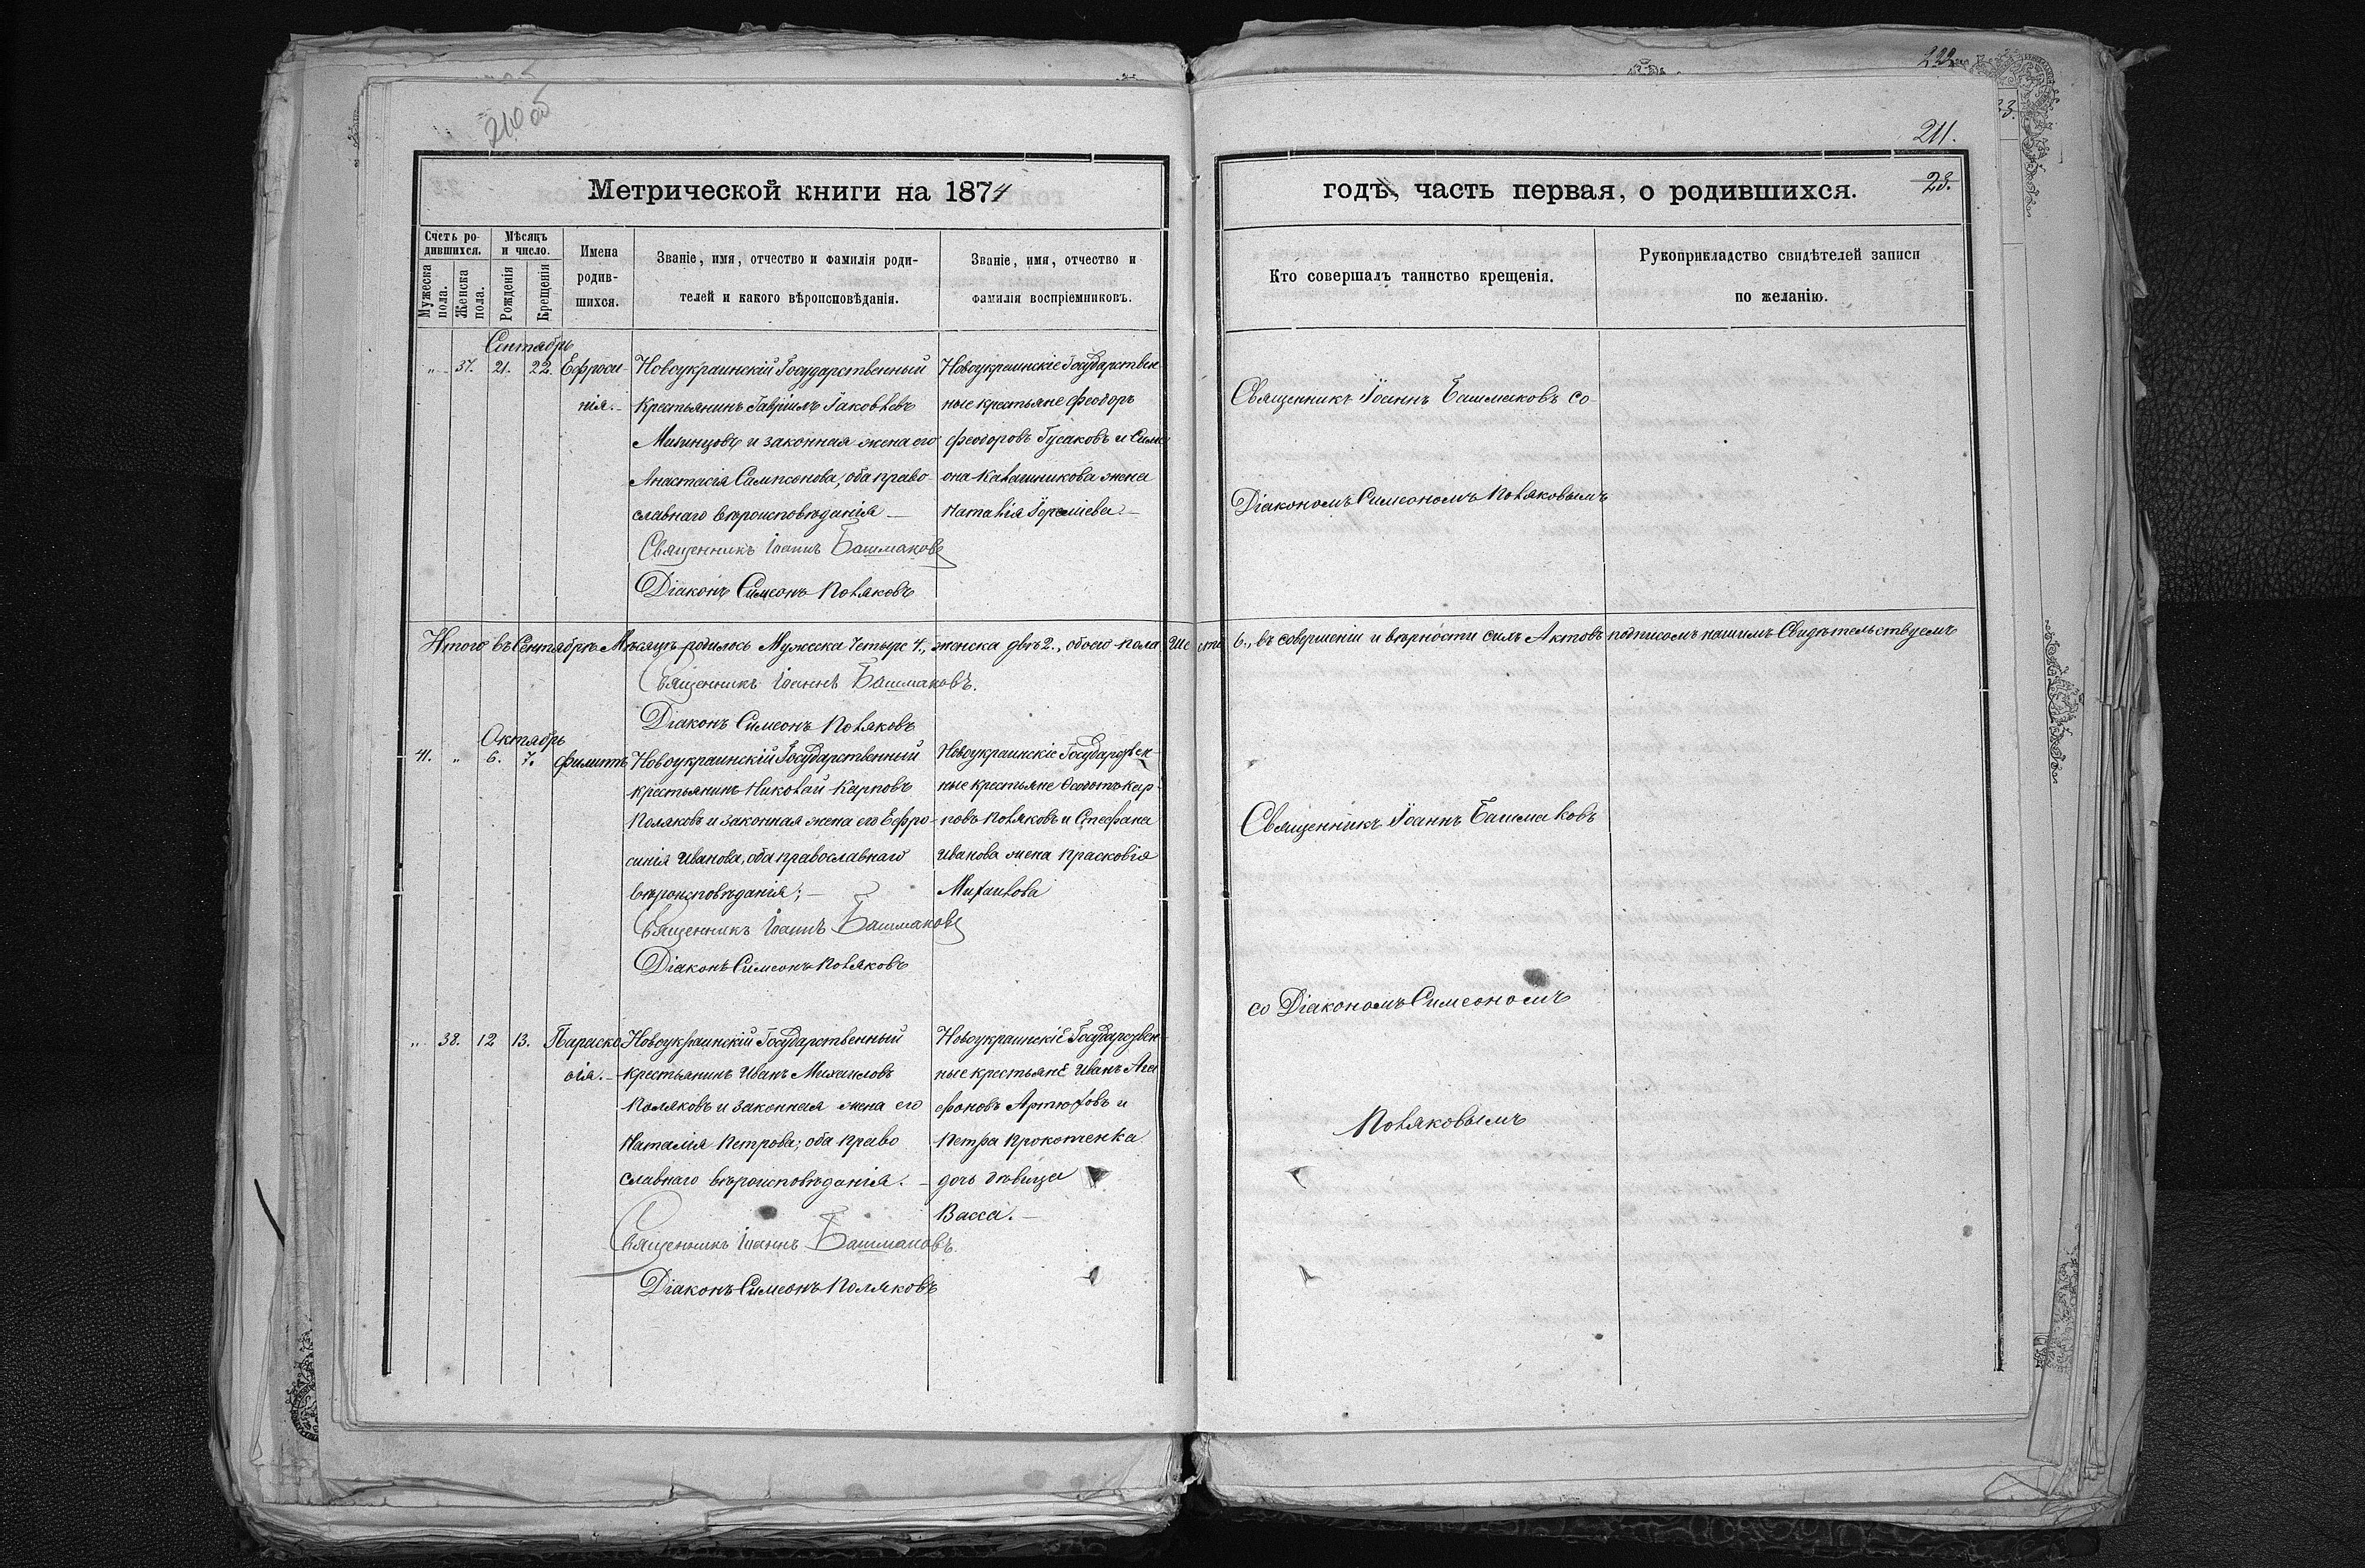 210 об
Метрической книги на 1874
Счетъ ро-
дившихся.
Мѣсяцъ
и число.
Мужеска
пола.
Женска
пола.
Рожденія
Крещенія
Имена
родив-
шихся.
Званіе, имя, отчество и фамилія роди-
телей и какого вѣроисповѣданія.
Званіе, имя, отчество и
фамилія воспріемниковъ.
Сентябрь
„ 37. 21. 22. Ефроси
нія.
Новоукраинскій Государственный
Крестьянинъ Гавріилъ Іаковлевъ
и законная жена его
Анастасія Сампсонова, оба право
славнаго вѣроисповѣданія
Священникъ Іоаннъ Башмаковъ
Діаконъ Симеонъ Поляковъ
Новоукраинскіе Государствен
ные крестьяне Феодоръ
Феодоровъ Гусаковъ и Симе
она Калашникова жена
Наталія
Итого въ Сентябрѣ Мѣсяцѣ родилось Мужеска Четыре 4., женска двѣ 2., обоего пола Шесть 6., въ совершеніи и вѣрности силъ Актовъ подписомъ нашимъ Свидѣтельствуемъ
Священникъ Іоаннъ Башмаковъ.
Діаконъ Симеонъ Поляковъ
Октябрь
41. „ 6. 7. Филиппъ
Новоукраинскій Государственный
крестьянинъ Николай Карповъ
Поляковъ и законная жена его Ефро-
синія Иванова, оба православнаго
вѣроисповѣданія;
Священникъ Іоаннъ Башмаковъ
Діаконъ Симеонъ Поляковъ
Новоукраинскіе Государствен-
ные крестьяне Кар-
повъ Поляковъ и Стефана
Иванова жена Прасковія
Михаилова
„ 38. 12 13. Параско
вія.
Новоукраинскій Государственный
крестьянинъ Иванъ Михаиловъ
Поляковъ и законная жена его
Наталія Петрова; оба право
славнаго вѣроисповѣданія.
Священникъ Іоаннъ Башмаковъ.
Діаконъ Симеонъ Поляковъ
Новоукраинскіе Государствен
ные крестьяне Иванъ Ага
фоновъ Артюховъ и
Петра Прокопенка
дочь дѣвица
Васса.
222
211.
23.
годъ, часть первая, о родившихся.
Кто совершалъ таинство крещенія.
Рукоприкладство свидѣтелей записи
по желанію.
Священникъ Іоаннъ Башмаковъ со
Діакономъ Симеономъ Поляковымъ
Священникъ Іоаннъ Башмаковъ
со Діакономъ Симеономъ
Поляковымъ